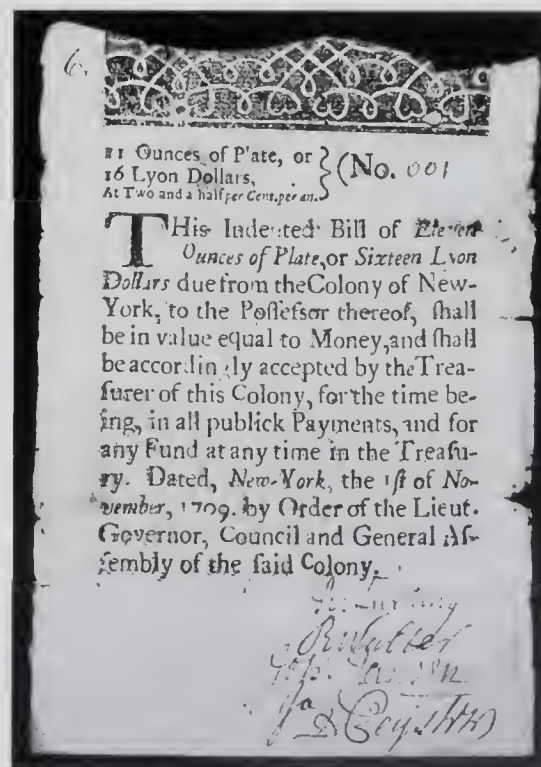 6.
11 Ounces of Plate, or
16 Lyon Dollars,
At Two and a half per Cent. per an.
(No. 001
THis Indented Bill of Eleven
Ounces of Plate, or Sixteen Lyon
Dollars due from the Colony of New-
York, to the Poſſeſsor thereof, ſhall
be in value equal to Money, and ſhall
be accordingly accepted by the Trea-
ſurer of this Colony, for the time be-
ing, in all publick Payments, and for
any Fund at any time in the Treaſu-
ry. Dated, New-York, the 1ſt of No-
vember, 1709. by Order of the Lieut.
Governor, Council and General Aſ-
ſembly of the ſaid Colony.